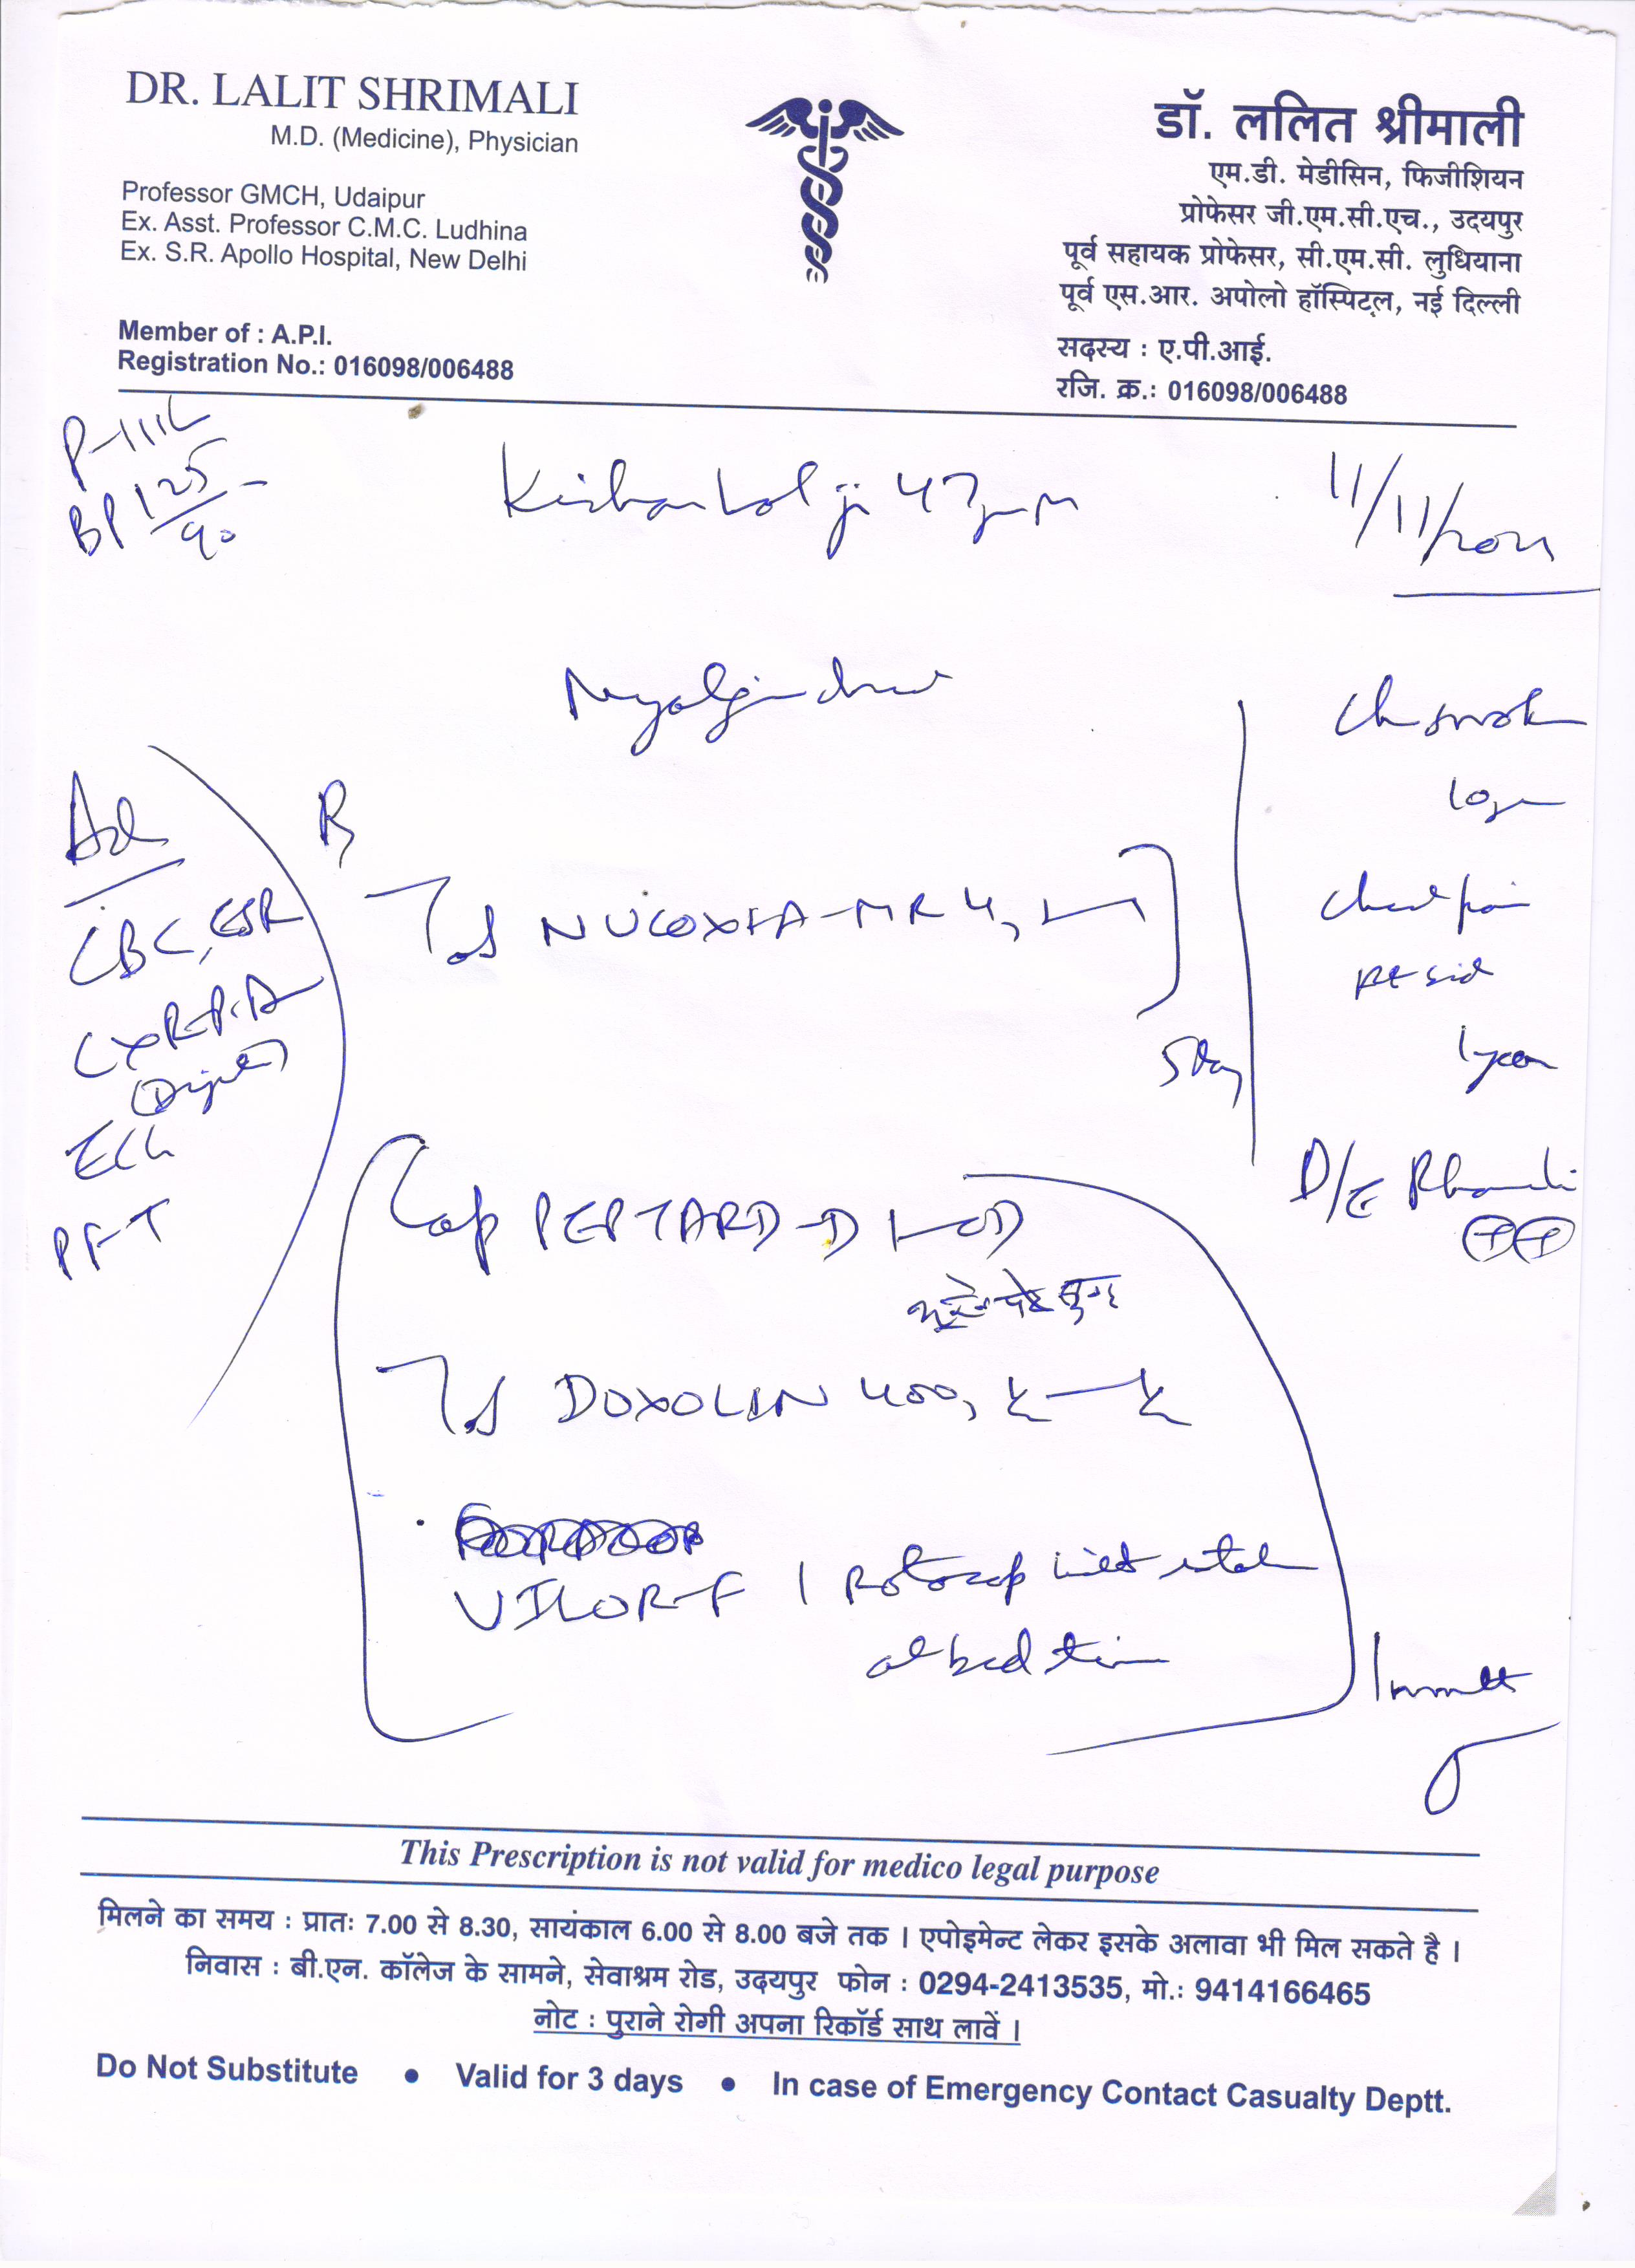 DR. LALIT SHRIMALI
M.D. (Medicine), Physician
Professor GMCH, Udaipur
Ex. Asst. Professor C.M.C. Ludhina
Ex. S.R. Apollo Hospital, New Delhi
Member of : A.P.I.
Registration No.: 016098/006488
डॉ. ललित श्रीमाली
एम.डी. मेडीसिन, फिजीशियन
प्रोफेसर जी.एम.सी.एच., उदयपुर
पूर्व सहायक प्रोफेसर, सी.एम.सी. लुधियाना
पूर्व एस.आर. अपोलो हॉस्पिटल, नई दिल्ली
सदस्य : ए.पी.आई.
रजि. क्र.: 016098/006488
BP 125/90
Kishan Lal ji 47
11/11/
Ch smok
Chest pain
Rt sid
1 year
D/E Rhonchi
++
Ad
CBC, ESR
CXR-P.A
ECG
PFT
R
NUCOXIA-MR 4,
5 day
Cap PEPTARD-D 1-OD
भूखे पेट सुबह
DOXOLIN 400, ½ — ½
1 Rotocap
at bed time
This Prescription is not valid for medico legal purpose
मिलने का समय : प्रातः 7.00 से 8.30, सायंकाल 6.00 से 8.00 बजे तक । एपोइमेन्ट लेकर इसके अलावा भी मिल सकते है ।
निवास : बी.एन. कॉलेज के सामने, सेवाश्रम रोड, उदयपुर फोन : 0294-2413535, मो.: 9414166465
नोट : पुराने रोगी अपना रिकॉर्ड साथ लावें ।
Do Not Substitute • Valid for 3 days • In case of Emergency Contact Casualty Deptt.